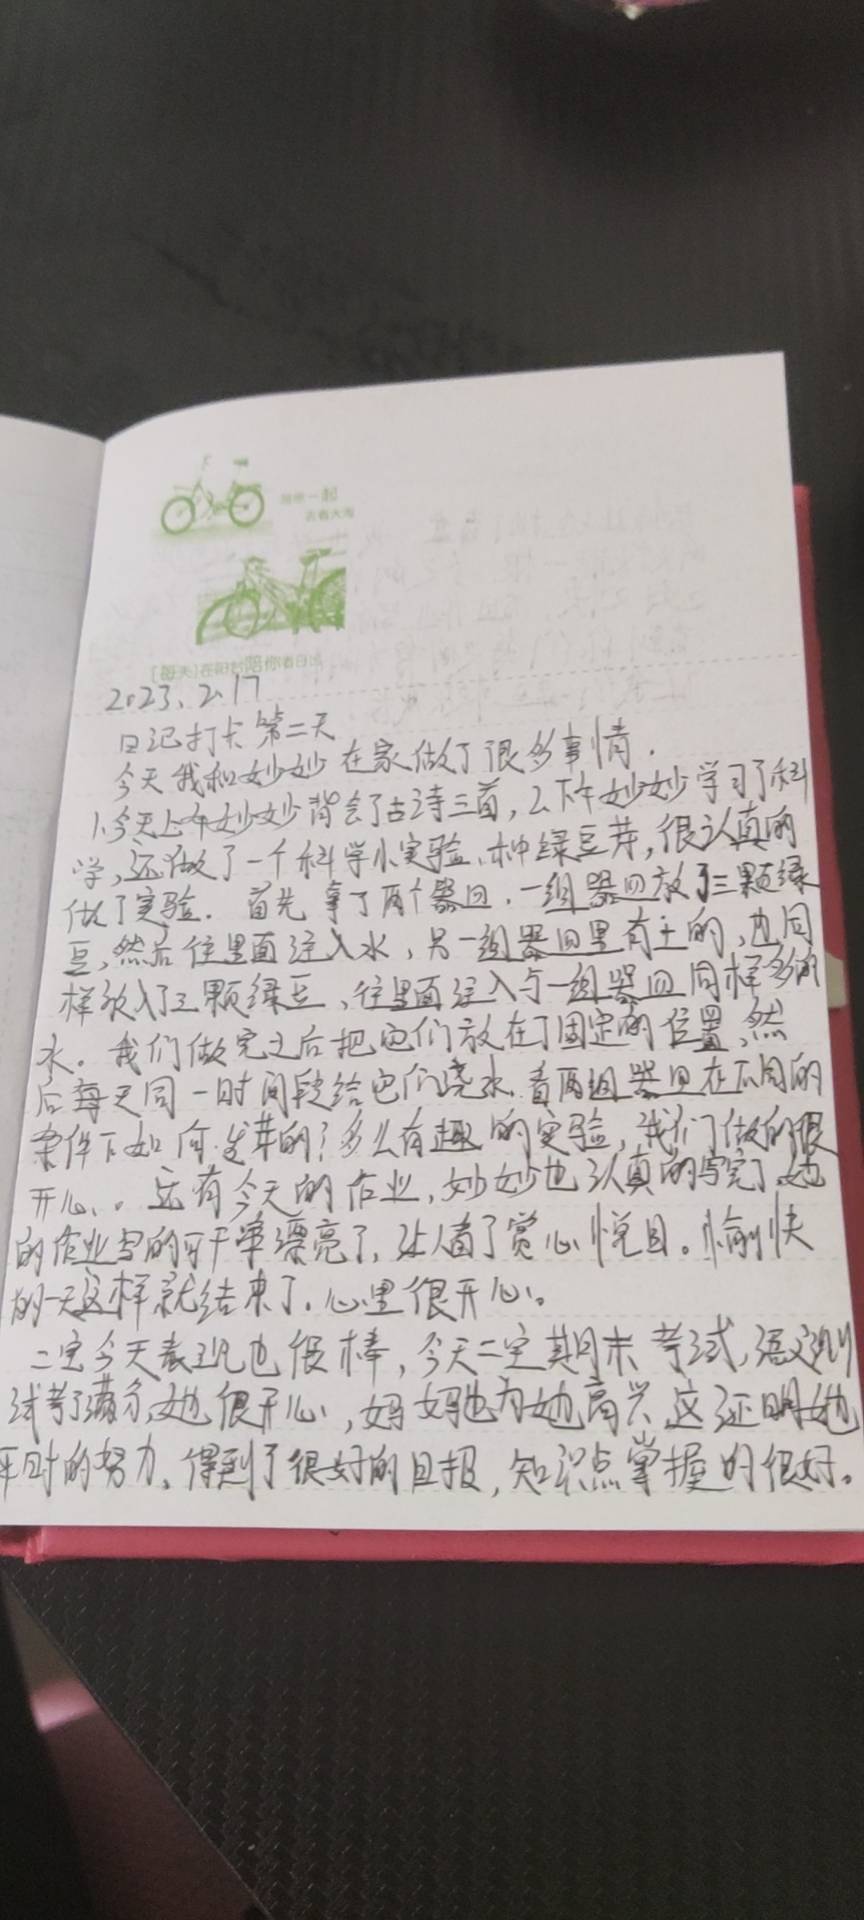 一起
去看大海
[每天]在阳台陪你看日出
2023.2.17
日记打卡第二天
今天我和妙妙在家做了很多事情.
1.今天上午妙妙背会了古诗三首,2.下午妙妙学习了科
学,还做了一个科学小实验、种绿豆芽,很认真的
做了实验.首先拿了两个器皿.一组器皿放了三颗绿
豆,然后往里面注入水,另一组器皿里有土的,也同
样放入了三颗绿豆、往里面注入与一组器皿同样多的
水.我们做完之后把它们放在了固定的位置,然
后每天同一时间段给它们浇水.看两组器皿在不同的
条件下如何发芽的?多么有趣的实验,我们做的很
开心.。还有今天的作业,妙妙也认真的写完了,她
的作业写的可干净漂亮了,让人看了赏心悦目。愉快
的一天这样就结束了.心里很开心。
二宝今天表现也很棒,今天二宝期末考试,语文测
试考了满分,她很开心,妈妈也为她高兴.这证明她
平时的努力.得到了很好的回报,知识点掌握的很好。